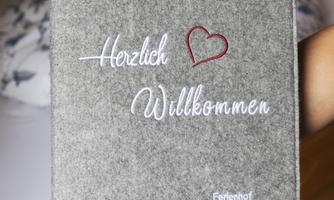 Herzlich
Willkommen
Ferienhof